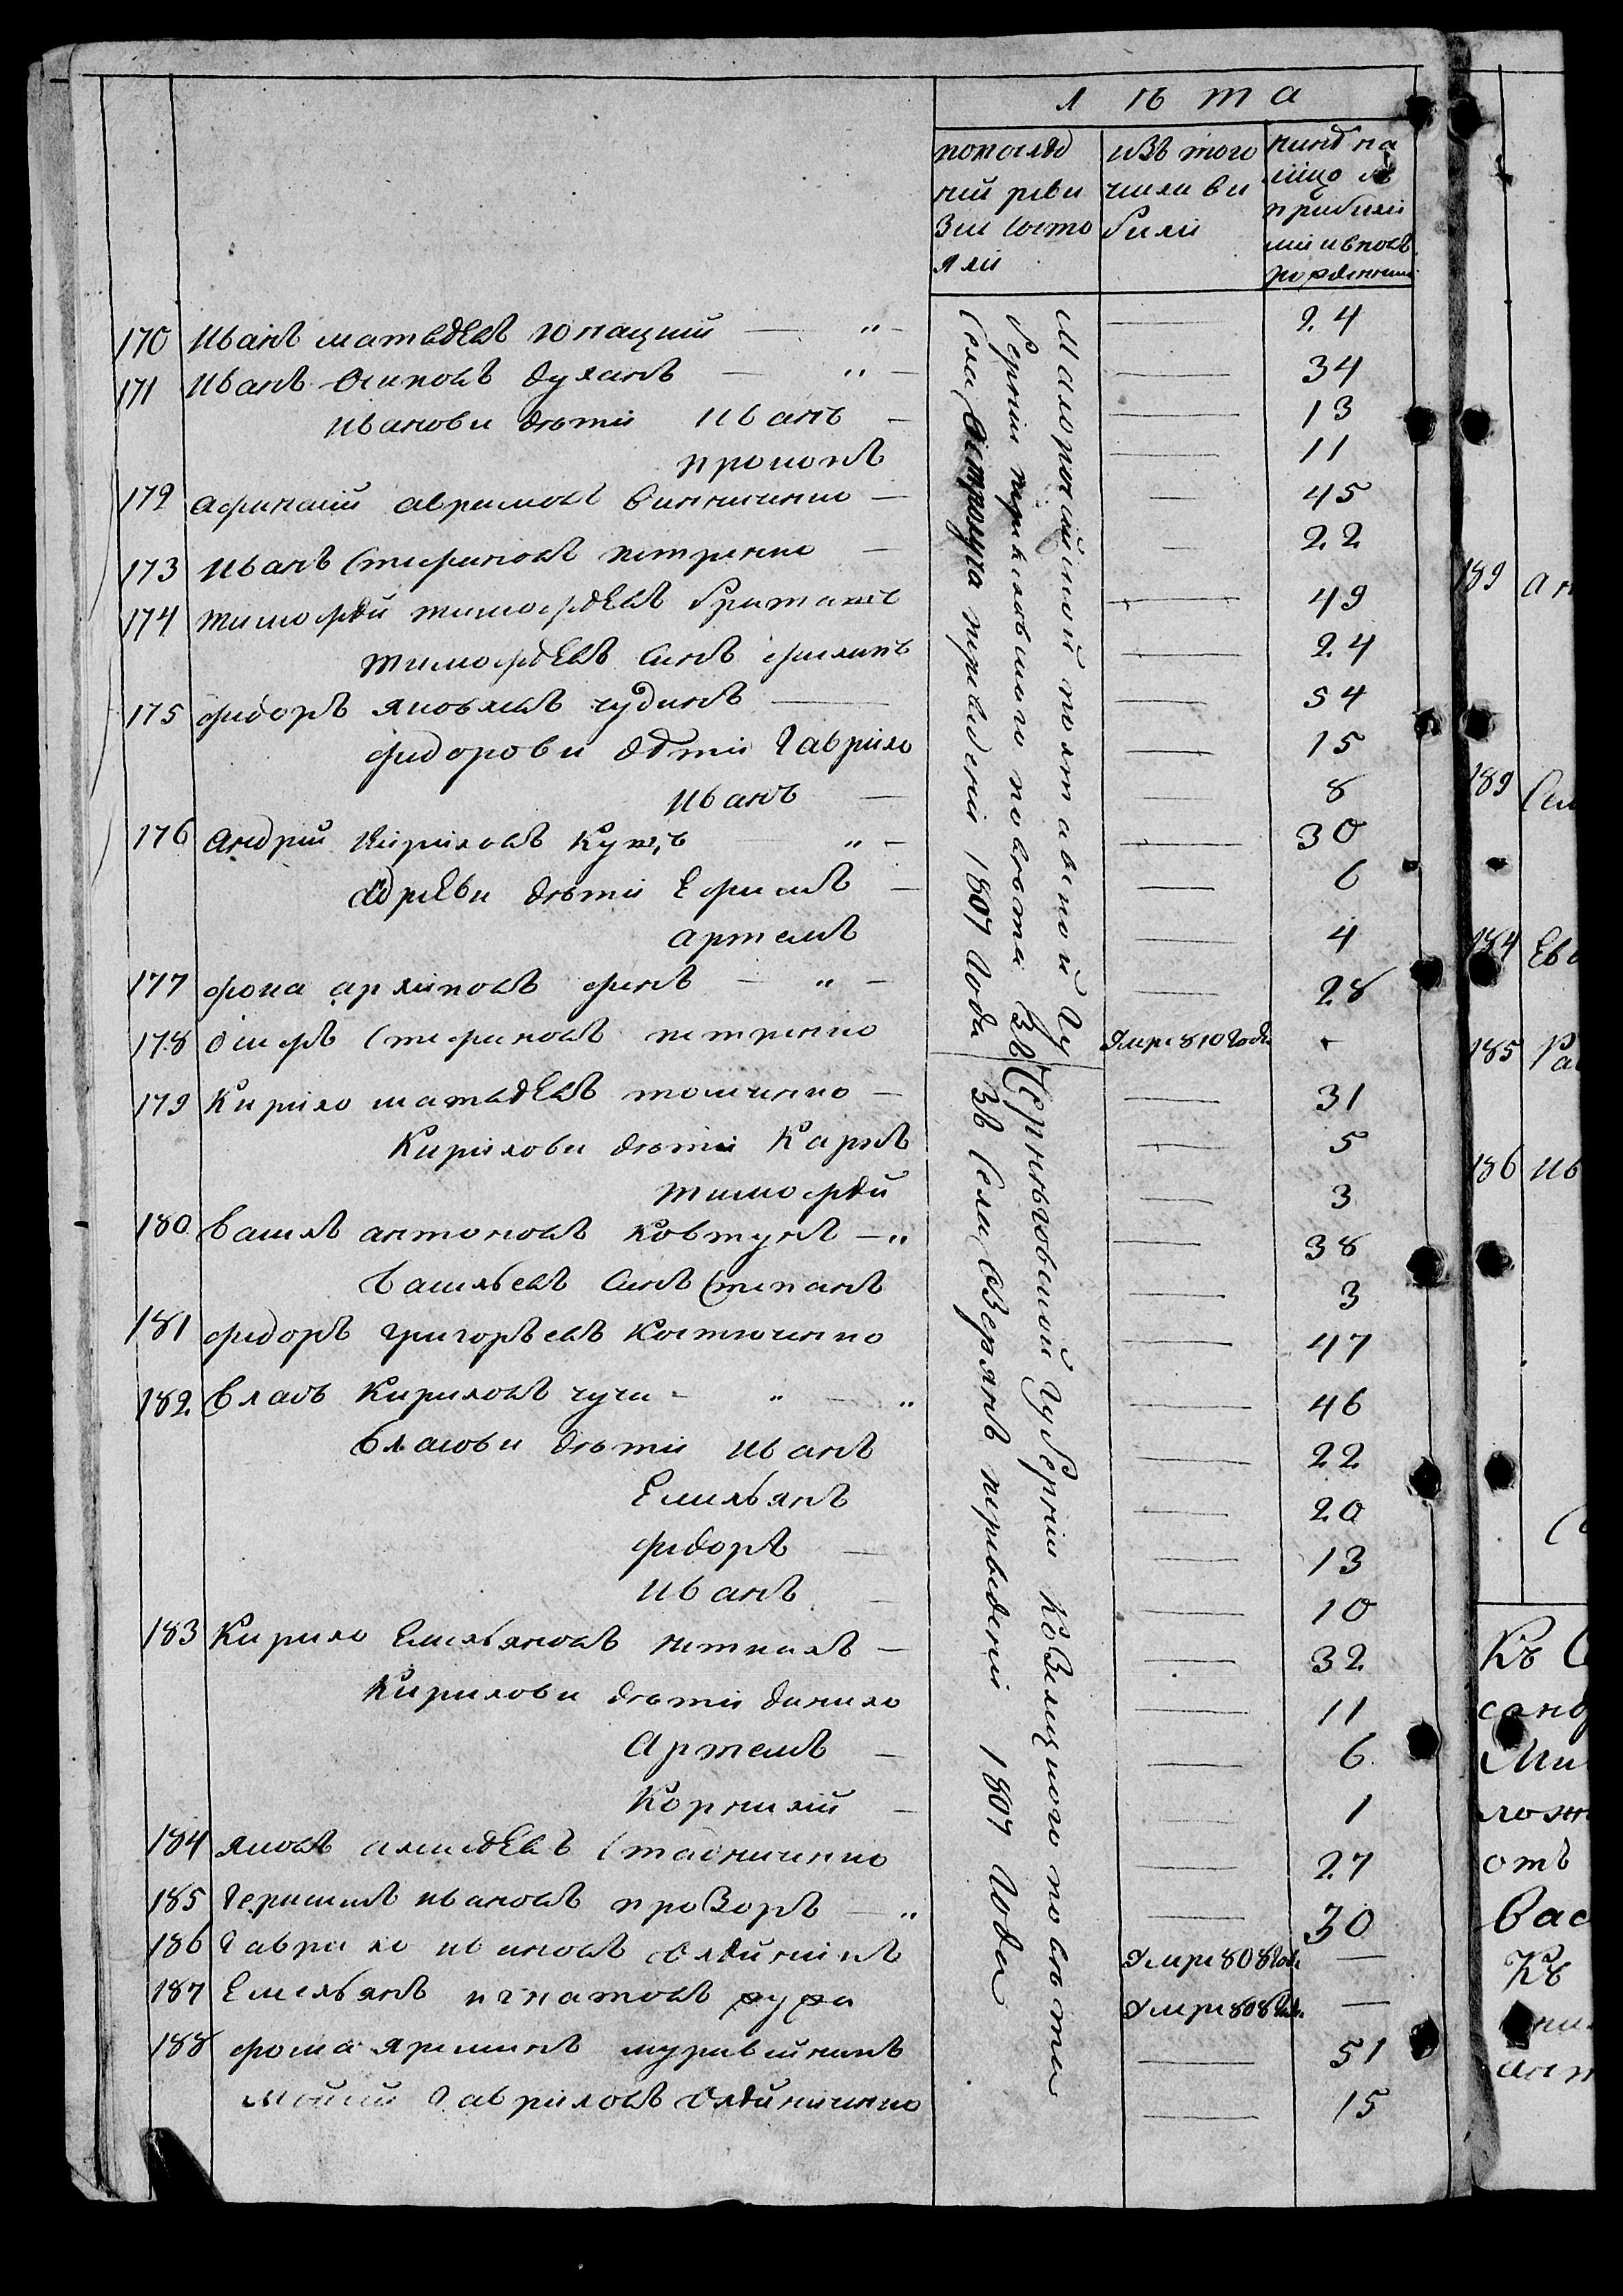 лѣта
попослѣд
ней реви
зии состо
яли
изъ того
числа ви
били
нине на
лицо съ
прибили
ми и вновь
рожденими
170 Иванъ матвѣевъ — „ — — 24
171 Иванъ Осиповъ дуланъ — „ — — 34
Иванови дѣти Иванъ — — 13
прокопъ — 11
172 афанасий аврамовъ Винниченко — — 45
173 Иванъ Стефановъ петренко — — 22
174 тимофѣй тимофѣевъ британъ — 49
тимофѣевъ Синъ филипъ — 24
175 фидоръ яковлевъ чудинъ — — 54
фидорови дѣти Гаврило — 15
Иванъ — — 8
176 андрий Кириловъ Куцъ „ — — 30
адрѣеви дѣти Ефимъ — — 6
артемъ — 4
177 фома арліповъ финъ — „ — — 28
178 осифъ Стефановъ петренко Умре 810 Года
179 Кирило матвѣевъ томченко — — 31
Кирилови дѣти Карпъ — 5
тимофѣй — 3
180 Василь антоновъ Ковтунъ — „ — 38
Васильевъ Синъ Степанъ — 3
181 фидоръ григорьевъ Костюченко — 47
182 Власъ Кириловъ чуча — „ — „ — 46
Власови дѣти Иванъ — 22
Емильянъ — 20
фидоръ — — 13
Иванъ — — 10
183 Кирило Емильяновъ — — 32
Кирилови дѣти данило — 11
Артемъ — — 6
Корнилій — — 1
184 яковъ алисѣевъ Стадниченко — 27
185 Герасимъ ивановъ прозоръ — „ — 30
186 Гаврило ивановъ Олѣйникъ Умре 808 Года —
187 Емельянъ игнатовъ Умре 808 Года —
188 фома яриминъ муравйникъ — 51
Мойсий Гавриловъ Олѣйниченко — 15
Малоросийской полтавской Гу
бернии переяславского повѣта Зъ
села переведени 1807 Года
Черниговской Губернии Козелцкого повѣта
Зъ села Озерянъ переведени 1807 Года
189 Ан
189
184 Ев
185
186 Ив
Къ
Ми
отъ
Вас
Къ